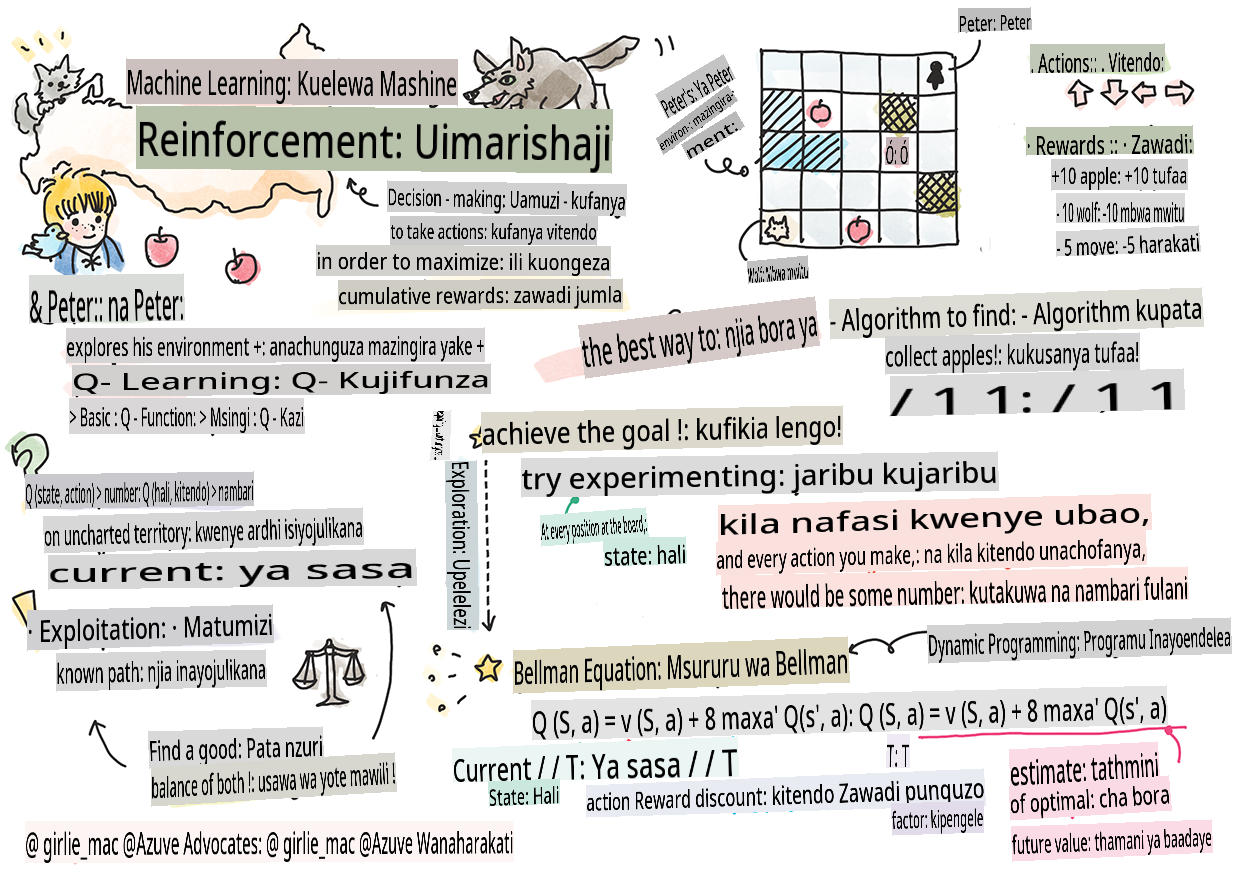 Peter: Peter
Machine Learning: Kuelewa Mashine
Reinforcement: Uimarishaji
Peter's: Ya Peter
environ-: mazingira-
ment:
. Actions:: . Vitendo:
· Rewards :: · Zawadi:
+10 apple: +10 tufaa
- 10 wolf: -10 mbwa mwitu
- 5 move: -5 harakati
Ó: Ó
Wolf: Mbwa mwitu
Decision - making: Uamuzi - kufanya
to take actions: kufanya vitendo
in order to maximize: ili kuongeza
cumulative rewards: zawadi jumla
& Peter:: na Peter:
explores his environment +: anachunguza mazingira yake +
Q- Learning: Q- Kujifunza
> Basic : Q - Function: > Msingi : Q - Kazi
the best way to: njia bora ya
- Algorithm to find: - Algorithm kupata
collect apples!: kukusanya tufaa!
/ 1 1: / 1 1
achieve the goal !: kufikia lengo!
try experimenting: jaribu kujaribu
At every position at the board,:
kila nafasi kwenye ubao,
state: hali
and every action you make,: na kila kitendo unachofanya,
there would be some number: kutakuwa na nambari fulani
Q (state, action) > number: Q (hali, kitendo) > nambari
on uncharted territory: kwenye ardhi isiyojulikana
current: ya sasa
Exploration: Upelelezi
· Exploitation: · Matumizi
known path: njia inayojulikana
Find a good: Pata nzuri
balance of both !: usawa wa yote mawili !
Dynamic Programming: Programu Inayoendelea
Bellman Equation: Msururu wa Bellman
Q (S, a) = v (S, a) + 8 maxa' Q(s', a): Q (S, a) = v (S, a) + 8 maxa' Q(s', a)
Current / / T: Ya sasa / / T
T: T
State: Hali
action Reward discount: kitendo Zawadi punguzo
factor: kipengele
estimate: tathmini
of optimal: cha bora
future value: thamani ya baadaye
@ girlie_mac @Azuve Advocates: @ girlie_mac @Azuve Wanaharakati